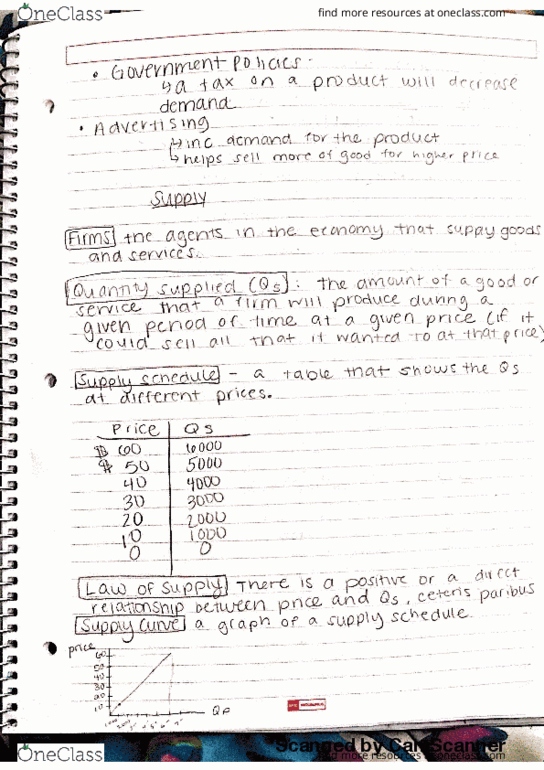 OneClass
find more resources at oneclass.com
• Government Policies -
↳ a tax on a product will decrease
demand
• Advertising
↳ inc demand for the product
↳ helps sell more of good for higher price
Supply
Firms the agents in the economy that supply goods
and services.
Quantity supplied (Qs): the amount of a good or
service that a firm will produce during a
given period of time at a given price (if it
could sell all that it wanted to at that price)
Supply schedule - a table that shows the Qs
at different prices.
Price Qs
$ 60 6000
$ 50 5000
40 4000
30 3000
20 2000
10 1000
0 0
Law of supply There is a positive or a direct
relationship between price and Qs, ceteris paribus
Supply curve a graph of a supply schedule.
price
60
50
40
30
20
10
OneClass
Scanned by CamScanner
find more resources at oneclass.com